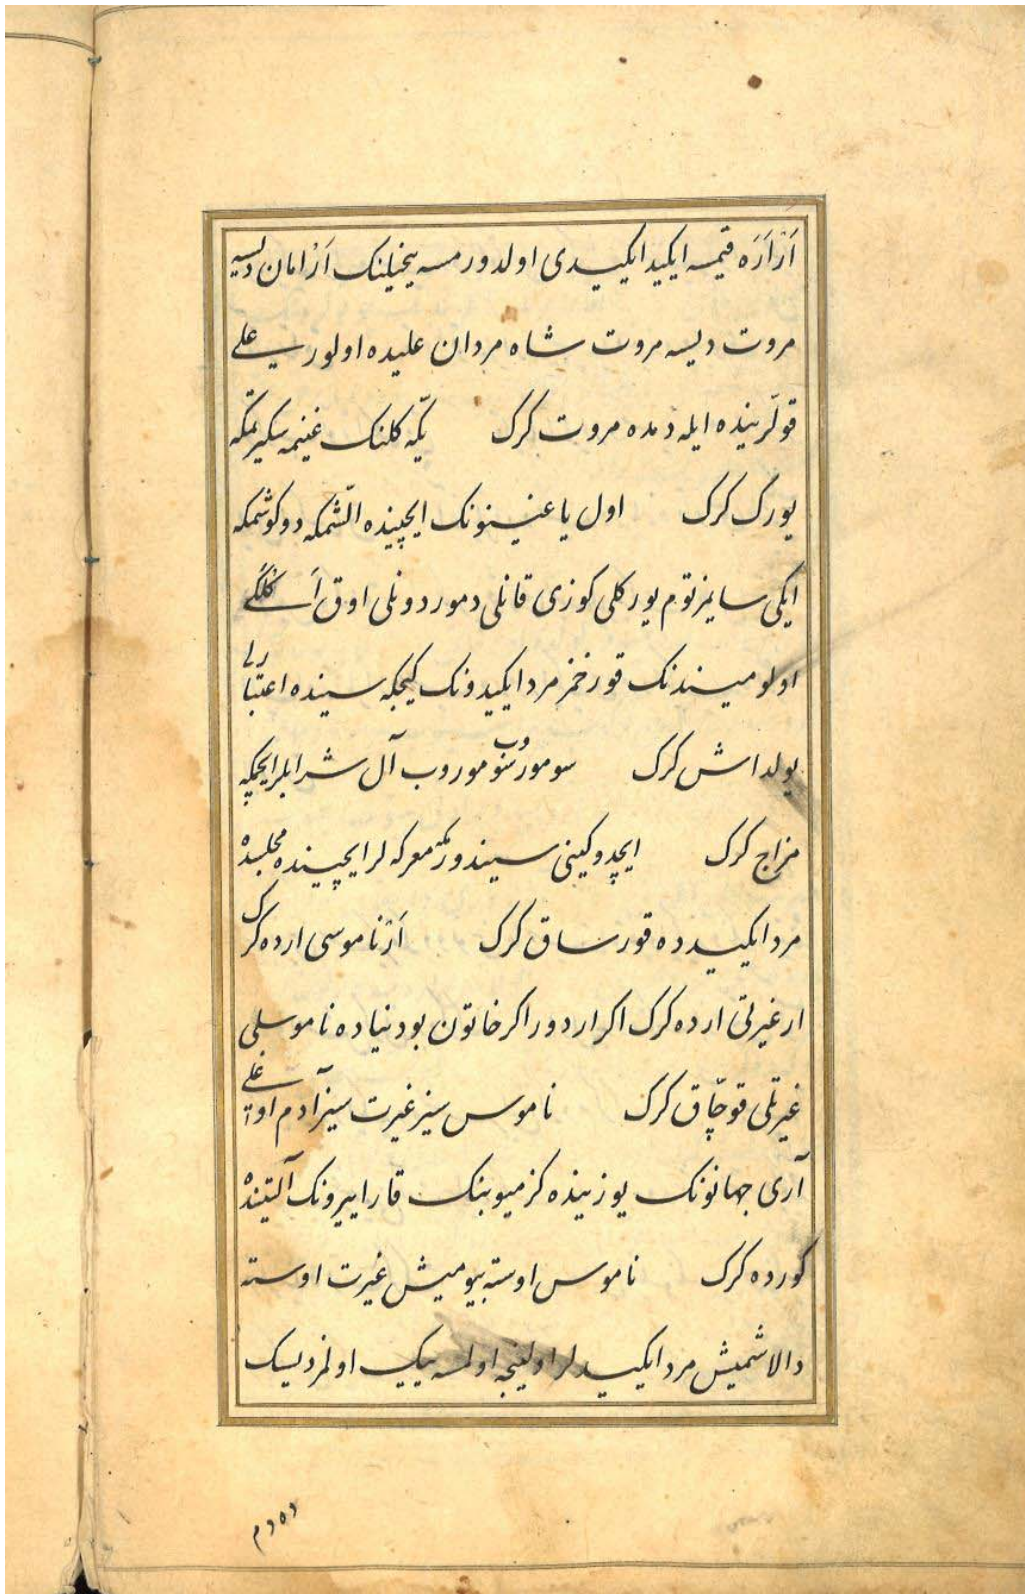 اَرْ اَرَه قیمسه ایکید ایکیدی اولدورمسه یخیلنک اَرْ امان دیسه
مروت دیسه مروت شاه مردان علیده اولور علی
قوللرینده ایله دمده مروت کرک یکّه کلنک غنیمه سکیرتمکه
یورک کرک اول یاغینونک ایچینده التشمکه دوکوشمکه
ایکی سایمز توم یورکلی کوزی قانلی دمور دونلی اوق اَتسه
اولو میندنک قورخمز مرد ایکیدونک کیچکه سینده اعتبارلی
یولداش کرک سوموروب سوموروب آل شرابلر ایچمکه
مزاج کرک ایچدوکینی سیندورمکه معرکه لر ایچینده مجلسده
مرد ایکیدده قورساق کرک اَرْ ناموسی ارده کرک
ار غیرتی ارده کرک اکر اردور اکر خاتون بو دنیاده ناموسلی
غیرتلی قوچّاق کرک ناموس سیز غیرت سیز آدم اوغلی
آری جهانونک یوزینده کزمیوبنک قارا ییرونک آلتینده
کورده کرک ناموس اوسته بیومیش غیرت اوسته
دالاشمیش مرد ایکیدلر اولینجه اولسه ییک اولمز دیسک